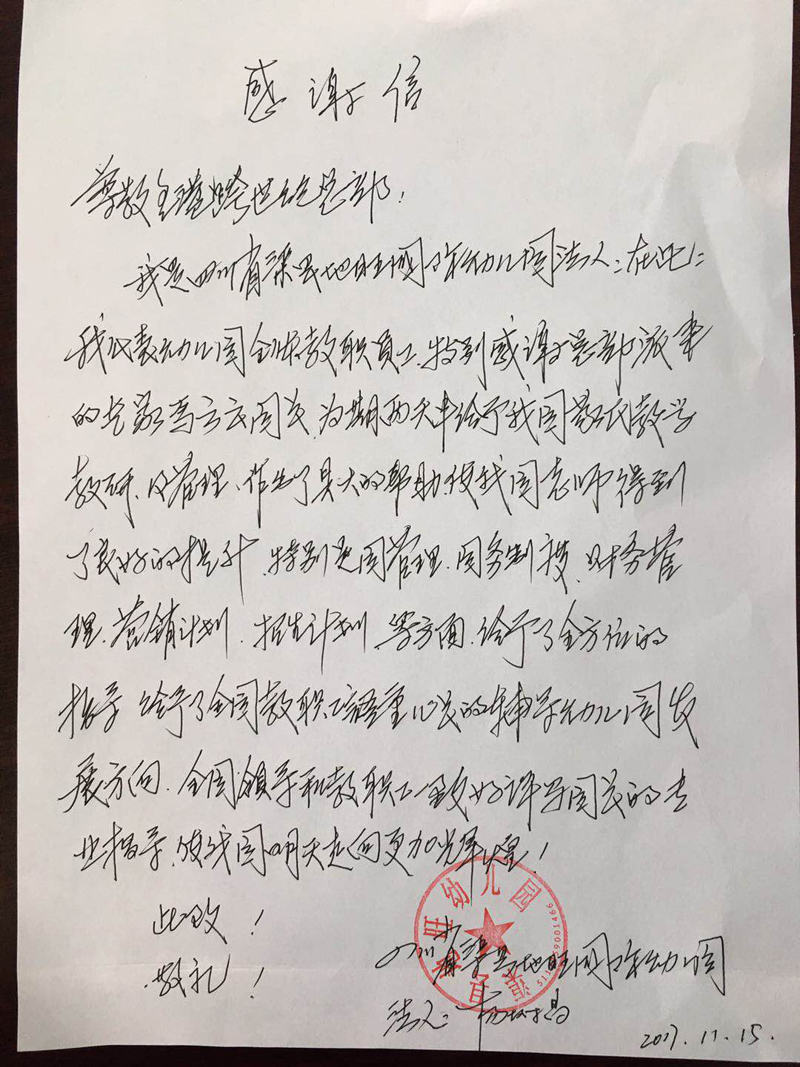 感谢信
尊敬全港跨世纪总部：
我是四川省渠县地旺国际幼儿园法人：在此
我代表幼儿园全体教职员工、特别感谢总部派来
的专家高立云园长、为期两天半给予我园蒙氏教学
教研、及管理、作出了具大的帮助、使我园老师得到
了良好的提升、特别是园管理、园务制度、财务管
理、营销计划、招生计划、等方面、给予了全方位的
指导给予了全园教职工语重心长的辅导幼儿园发
展方向、全园领导和教职工一致好评高园长的专
业指导、使我园明天走向更加辉煌！
此致！
敬礼！
四川省渠县地旺国际幼儿园
法人：
2017.11.15.
幼儿园